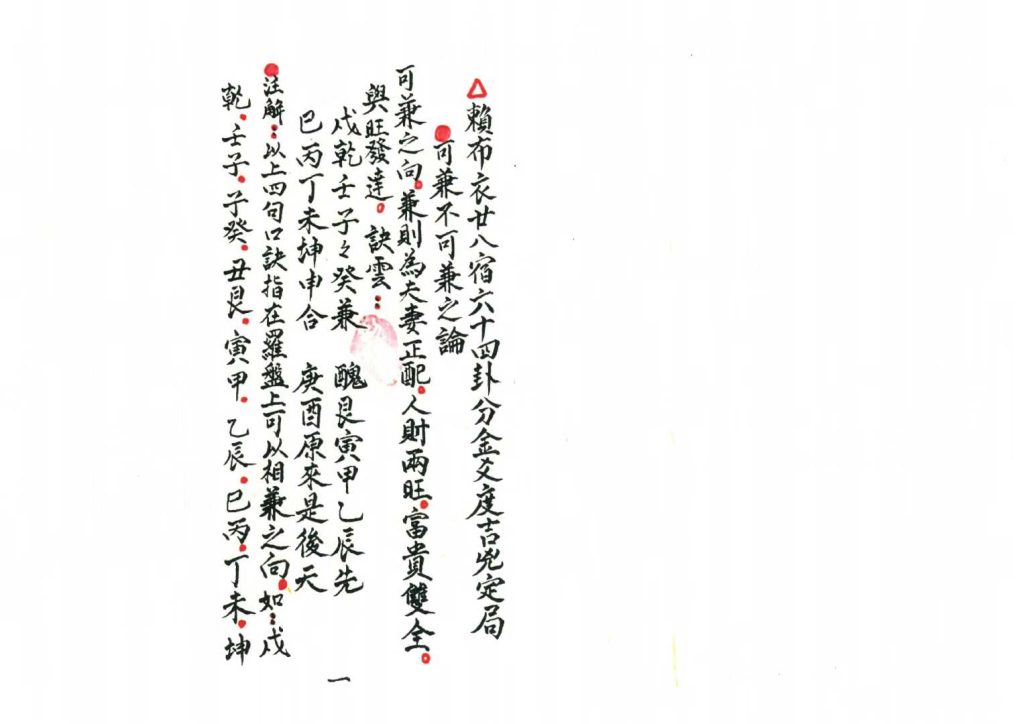 賴布衣廿八宿六十四卦分金爻度吉兇定局
可兼不可兼之論
可兼之向。兼則為夫妻正配。人財兩旺。富貴雙全。
與旺發達。訣雲：
戌乾壬子々癸兼 醜艮寅甲乙辰先
巳丙丁未坤申合 庚酉原來是後天
注解：以上四句口訣指在羅盤上可以相兼之向。如：戌
乾。壬子。子癸。丑艮。寅甲。乙辰。巳丙。丁未。坤
一